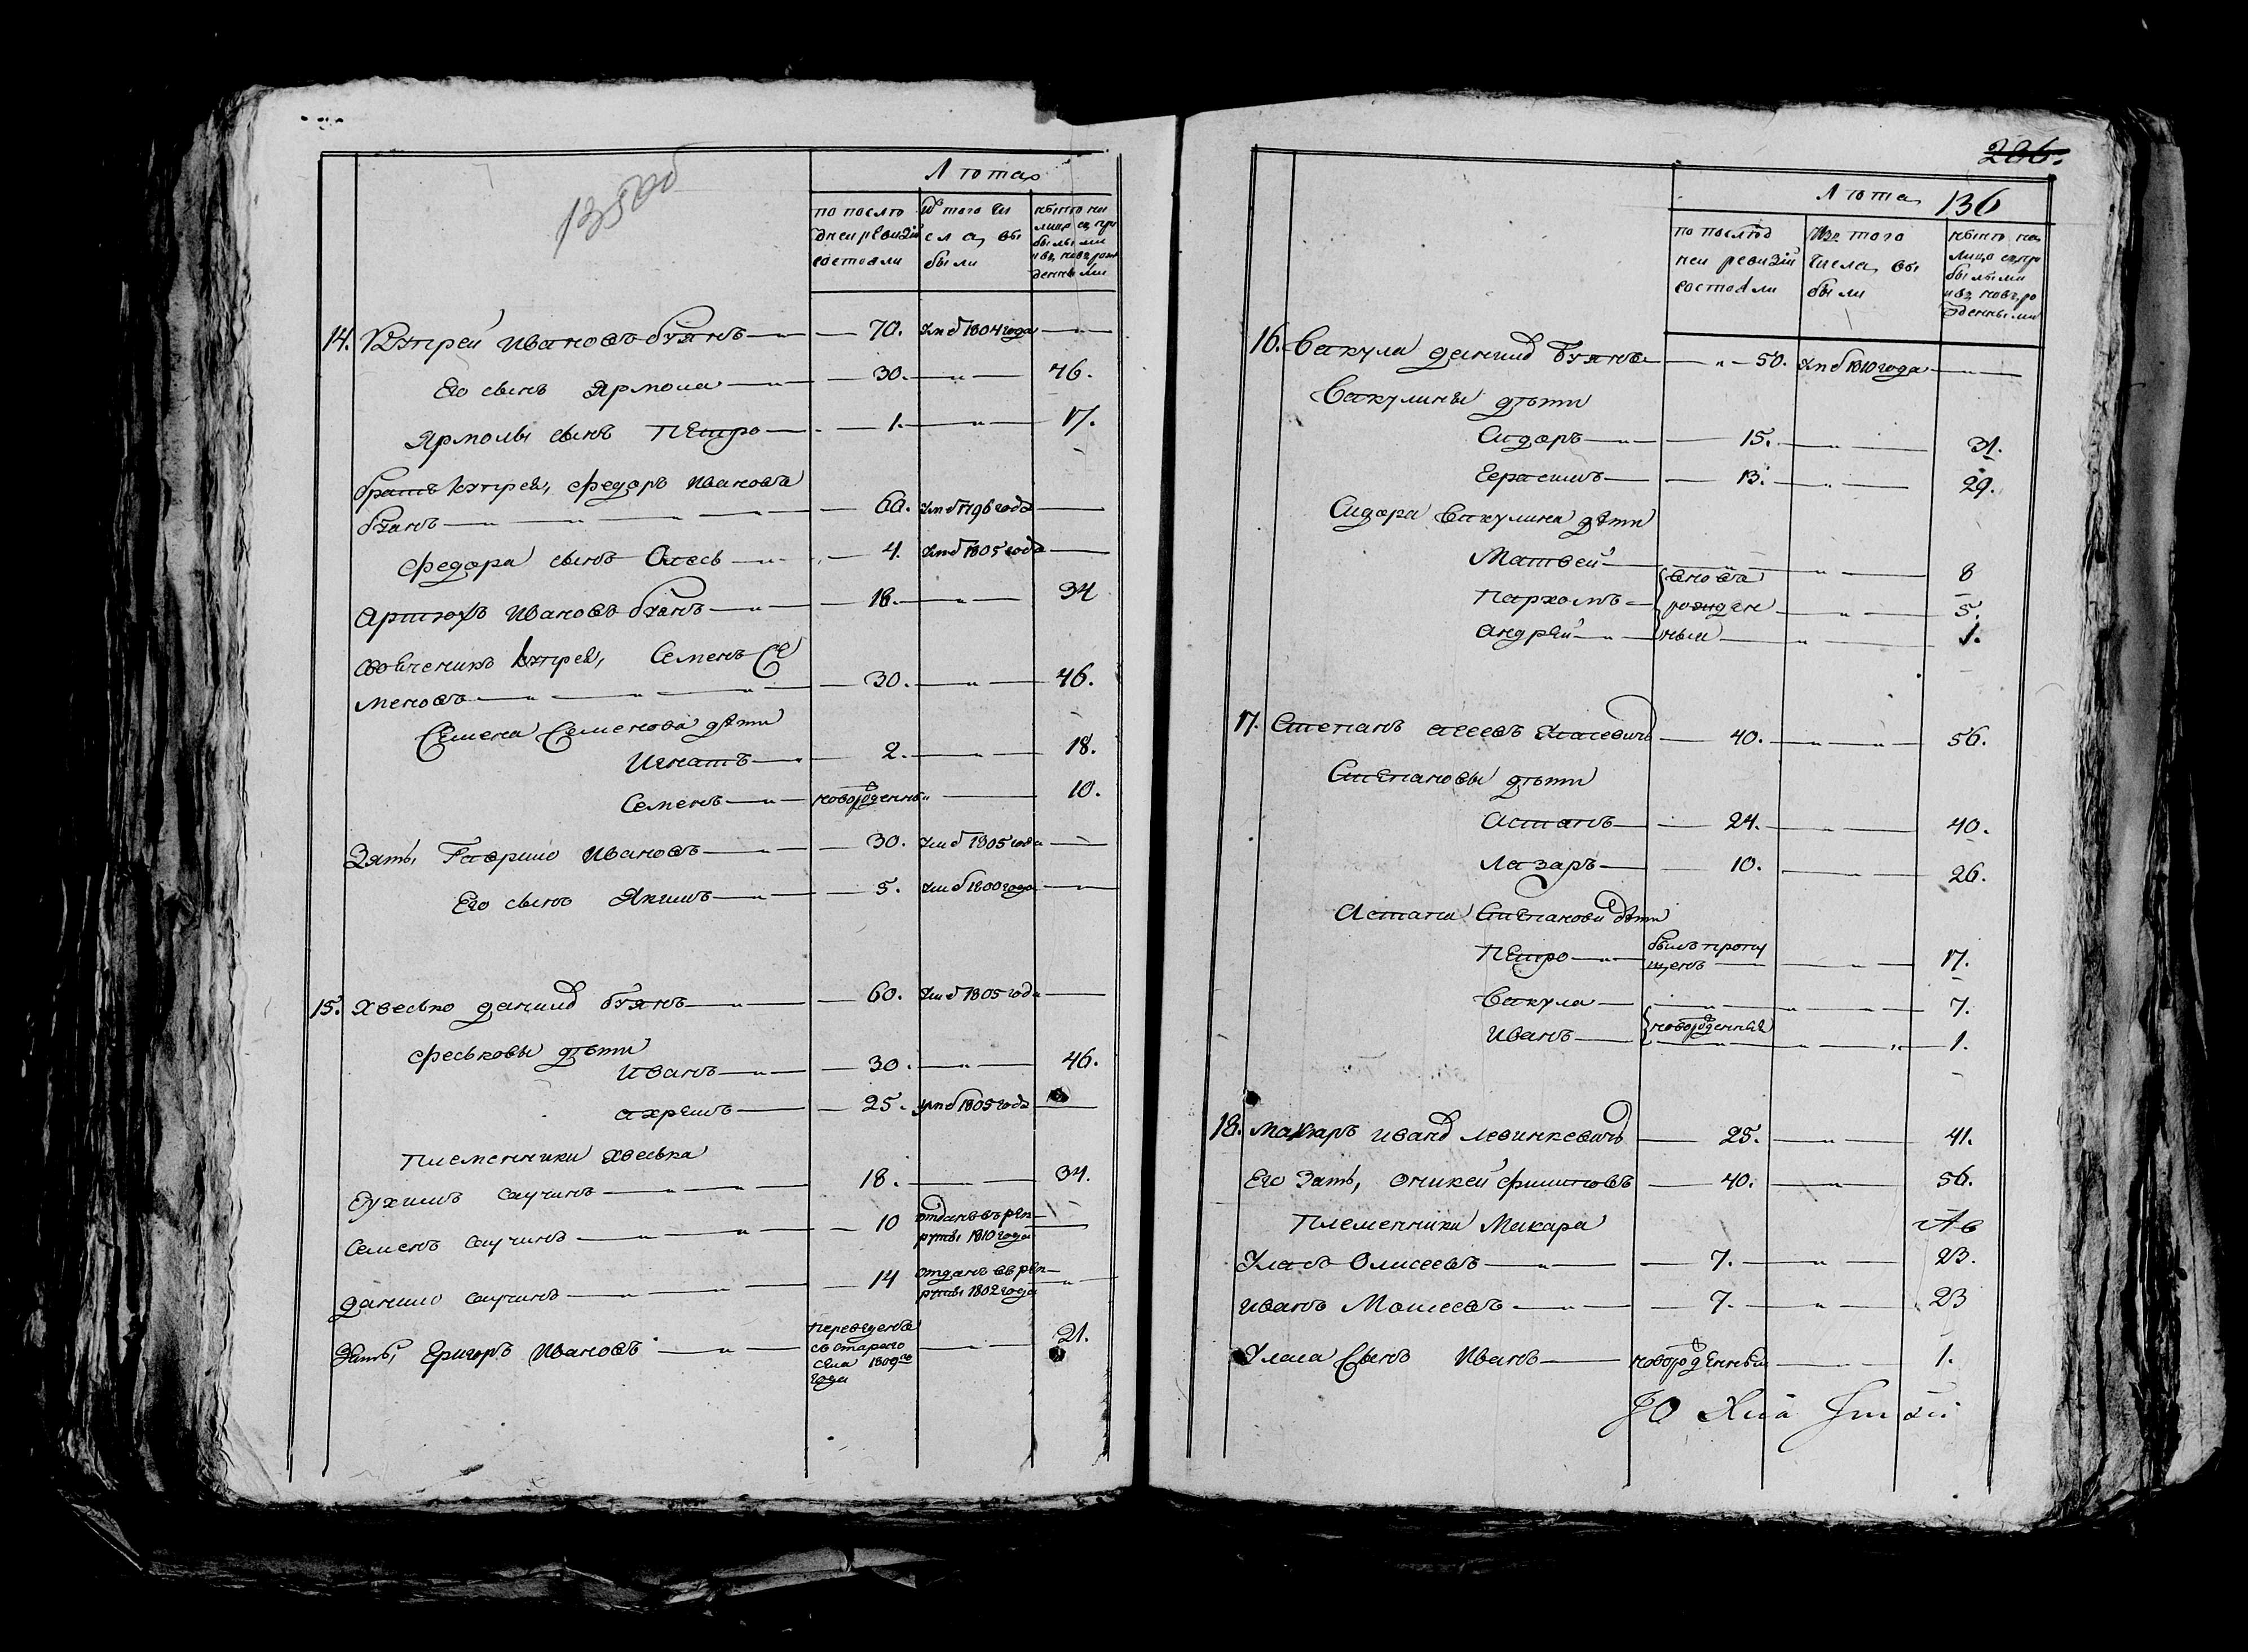 135об
Лѣта
по послѣ
дней ревизіи
состояли
Изъ того чи
сла, вы
были
ныне на
лицо съ при
былыми
и въ новъ рож
денными
14. Кѹпрей Ивановъ бѹянъ — 70. Умеᵈ 1804 года —
Его сынъ Ярмола — 30. — 46.
Ярмолы сынъ Петро — 1. — 17.
братъ Кѹпрея, Федоръ Ивановъ
бѹянъ — 60. Умеᵈ 1796 года —
Федора сынъ Олесь — 4. Умеᵈ 1805 года —
Артюхъ Ивановъ бѹянъ — 18. — 34
Семенъ Се
меновъ — 30. — 46.
Семена Семенова дѣти
Игнатъ — 2. — 18.
Семенъ — новорожденны — 10.
Зять, Гаврило Ивановъ — 30. Умеᵈ 1805 года —
Его сынъ Якимъ — 5. Умеᵈ 1800 года —
15. Хвесько данилᵒᵛ бѹянъ — 60. Умеᵈ 1805 года —
Феськовы дѣти
Иванъ — 30. — 46.
ахремъ — 25. Умеᵈ 1805 года —
Племенники Хвеська
Еѹхимъ саучинъ — 18. — 34.
Семенъ саучинъ — 10 отданъ въ рек—
руты 1810 года —
данило саучинъ — 14 отданъ въ рек—
руты 1802 года —
Зять, Григоръ Ивановъ — переведенъ
съ старого
села 1809го
года — 21.
206.
136
Лѣта
по послѣд
ней ревизіи
состояли
Изъ того
числа, вы
были
ныне на
лицо съ при
былыми
и въ новъ ро
жденными
16. Вакула данилᵒᵛ Бѹянъ — 50. Умеᵈ 1810 года —
Вакулины дѣти
Сидоръ — 15. — 31.
Герасимъ — 13. — 29.
Сидора Вакулина дѣти
Матвей — 8
вновъ
Пархомъ — рожден — 5.
Андрей — ныи — 1.
17. Степанъ — 40. — 56.
Степановы дѣти
Астапъ — 24. — 40.
Лазаръ — 10. — 26.
Астапа Степанова дѣти
Петро — былъ пропу
щенъ — 17.
Вакула — 7.
новорожденныя
Иванъ — 1.
18. Макаръ иванᵒᵛ левинкевичъ — 25. — 41.
Его Зять, Оникей Филиповъ — 40. — 56.
Племенники Макара
Уласъ Олисеевъ — 7. — 23.
Иванъ Моисеевъ — 7. — 23
Уласа Сынъ Иванъ — новорожденный — 1.